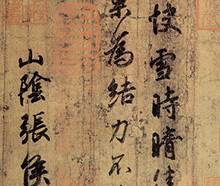 快雪時晴佳
果為結力不
山陰張侯